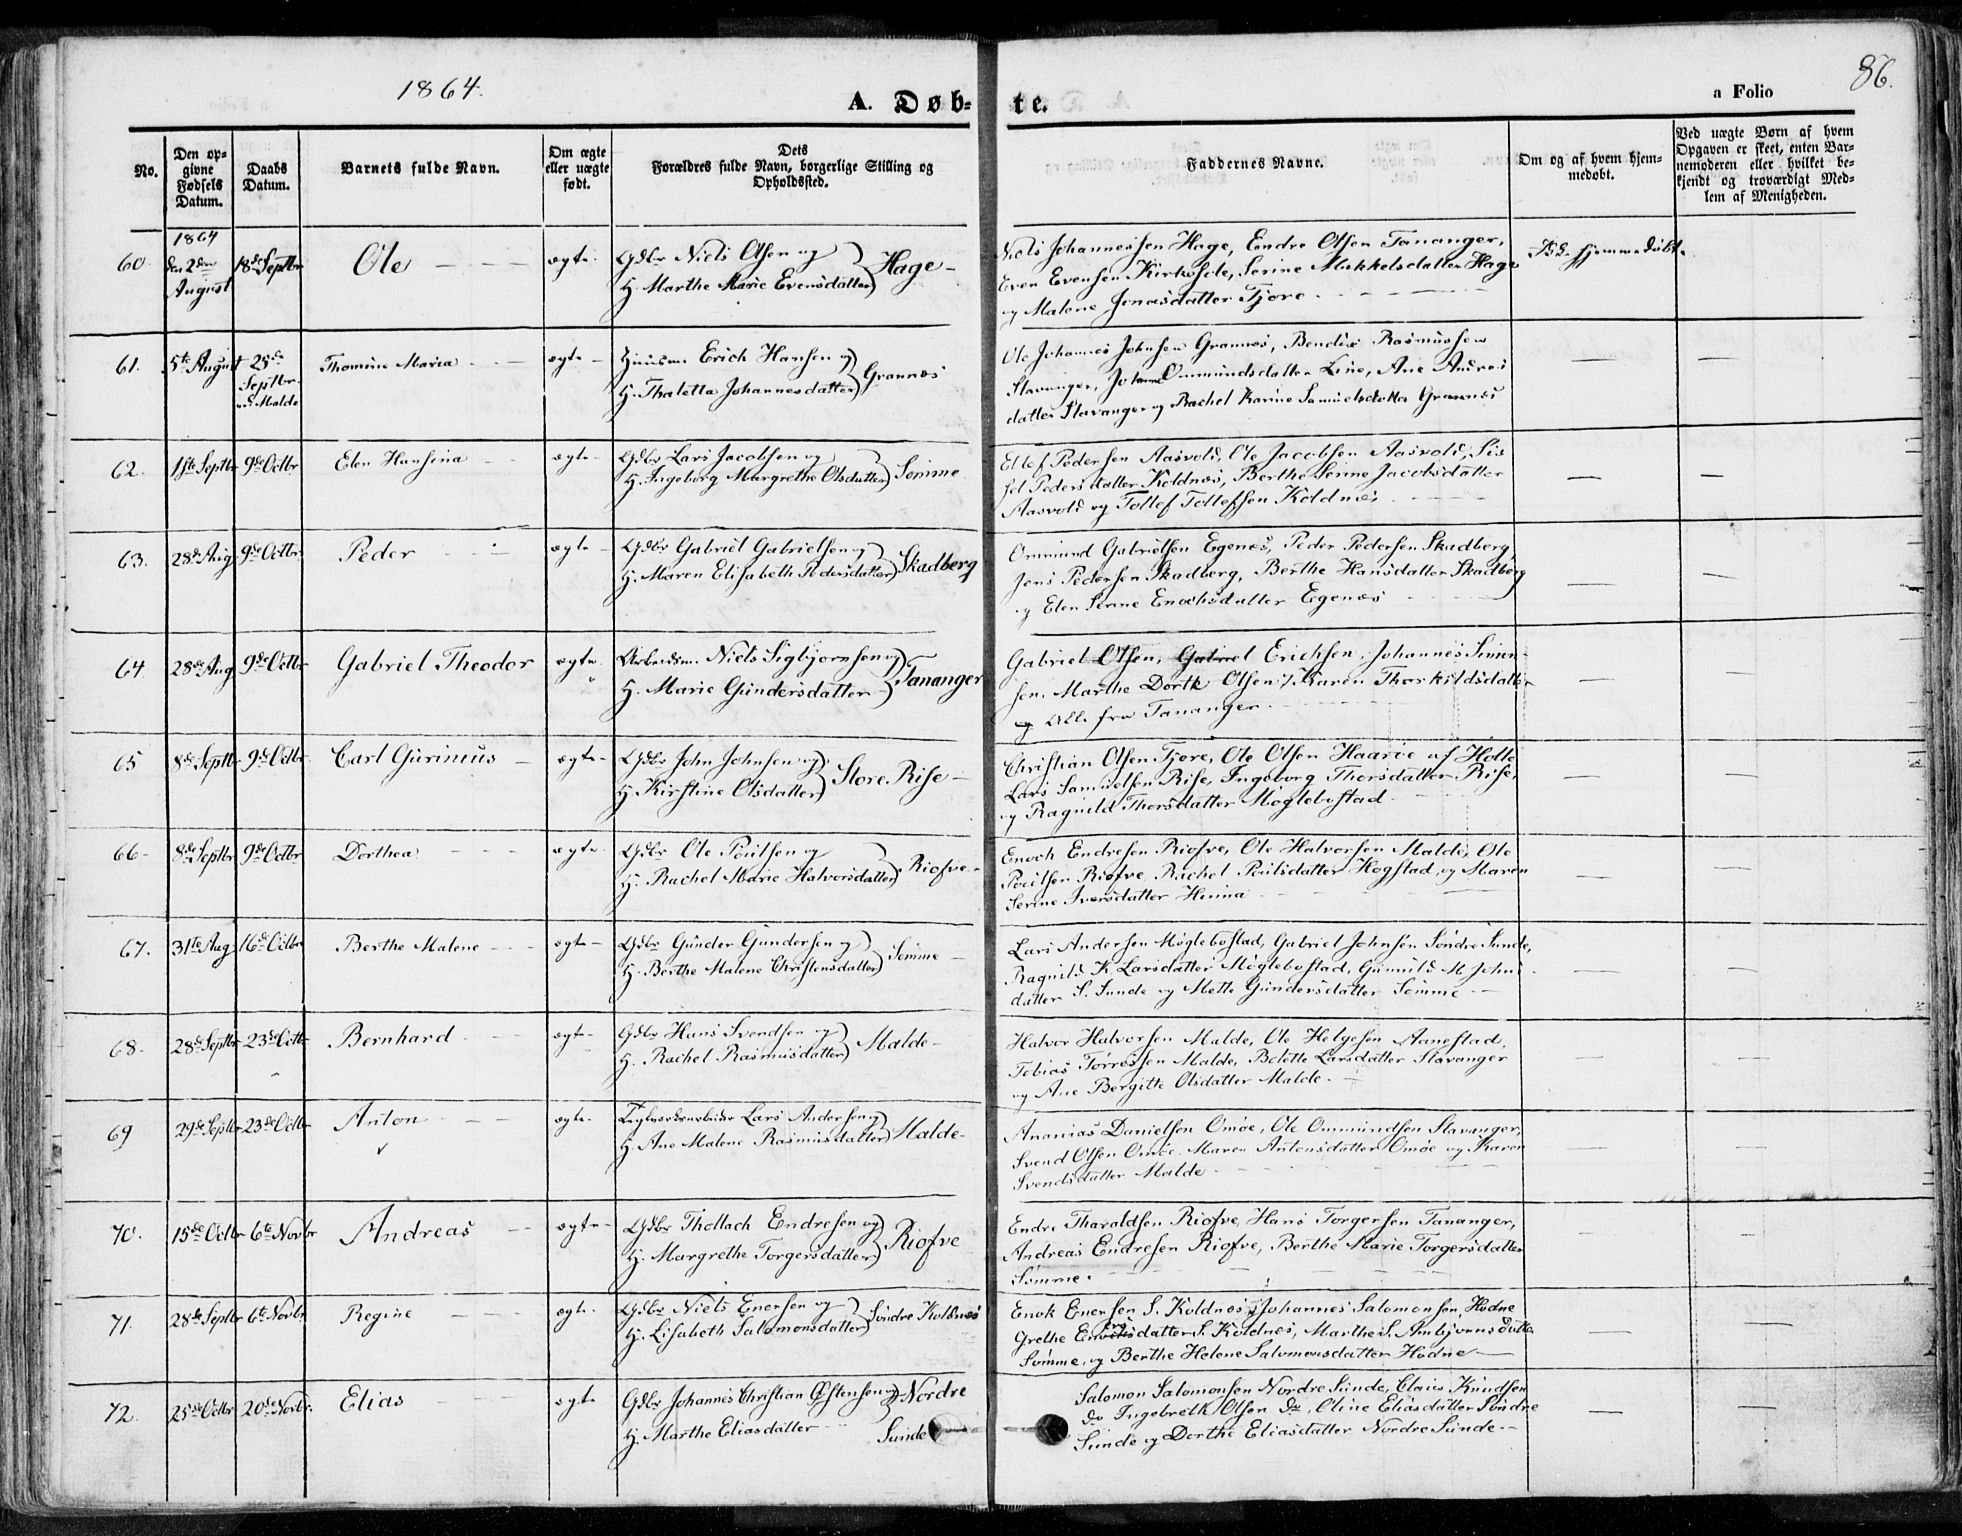 1864.
A. Døb-
te.
a Folio
86.
No.
Den op-
givne
Fødsels
Datum.
Daabs
Datum.
Barnets fulde Navn.
Om ægte
eller uægte
født.
Dets
Forældres fulde Navn, borgerlige Stilling og
Opholdssted.
Faddernes Navne.
Om og af hvem hjem-
medøbt.
Ved uægte Børn af hvem
Opgaven er skeet, enten Bar-
nemoderen eller hvilket be-
kjendt og troværdigt Med-
lem af Menigheden.
1864
60. den 2den August 18de Septbr Ole ægte
Gdbr Niels Olsen og
H. Marthe Marie Evensdatter Hage
Niels Johannessen Hage, Endre Olsen Tananger,
Even Evensen Kirkohole, Serine Mikkelsdatter Hage
og Malene Jonasdatter Tjore
hjemmedøbt
61. 5te August 25de Septbr Malde Thomine Maria ægte
Huusm. Erich Hansen og
H. Thaletta Johannesdatter Grannes
Ole Johannes Johnsen Grannes, Bendix Rasmussen
Stavanger, Ommundsdatter Line, Ane Andreas
datter Stavanger og Rachel Karine Samuelsdatter Grannes
62. 1ste Septbr 9de Octbr Elen Hansina ægte
Gdbr Lars Jacobsen og
H. Ingeborg Margrethe Olsdatter Sømme
Ellef Pedersen Aasvold, Ole Jacobsen Aasvold, Sis
sel Pedersdatter Koldnes, Berthe Serine Jacobsdatter
Aasvold og Tollef Tollefsen Koldnes
63. 28de Aug 9de Octbr Peder ægte
Gdbr Gabriel Gabrielsen og
H. Maren Elisabeth Pedersdatter Skadberg
Ommund Gabrielsen Egenes, Peder Pedersen Skadberg,
Jens Pedersen Skadberg, Berthe Hansdatter Skadberg
og Elen Serine Enochsdatter Egenes
64. 28de Aug 9de Octbr Gabriel Theodor ægte
Arbeidsm. Niels Sigbjørnsen og
H. Marie Gundersdatter Tananger
Gabriel Olsen, Gabriel Erichsen, Johannes Simon-
sen, Marthe Dorth. Olsen, Karen Thorkildsdatter
Alle fra Tananger
65 8de Septbr 9de Octbr Carl Gurinius ægte
Gdbr John Johnsen og
H. Kirstine Olsdatter Store Rise
Christian Olsen Tjore, Ole Olsen Haarie af Hølle
Lars Samuelsen Rise, Ingeborg Thorsdatter Rise,
og Ragnild Thorsdatter Møglebostad
66 8de Septbr 9de Octbr Dorthea ægte
Gdbr Ole Poulsen og
H. Rachel Marie Halvorsdatter Riofve
Enoch Endresen Riofve, Ole Halvorsen Malde, Ole
Poulsen Riofve, Rachel Poulsdatter Hogstad, og Maren
Serine Iversdatter Hinna
67. 31te Aug 16de Octbr Berthe Malene ægte
Gdbr Gunder Gundersen og
H. Berthe Malene Christensdatter Sømme
Lars Andersen Møglebostad, Gabriel Johnsen Søndre Sunde,
Ragnild K. Larsdatter Møglebostad, Gunnild M. Johns
datter S. Sunde og Mette Gundersdatter Sømme
68. 28de Septbr 23de Octbr Bernhard ægte
Gdbr Hans Svendsen og
H. Rachel Rasmusdatter Malde
Halvor Halvorsen Malde, Ole Helgesen Aanestad,
Tobias Torressen Malde, Bolette Larsdatter Stavanger
og Ane Bergitte Olsdatter Malde.
69 29de Septbr 23de Octbr Anton ægte
Teglværksarbeider Lars Andersen og
H. Ane Malene Rasmusdatter Malde
Ananias Danielsen Omøe, Ole Ommundsen Stavanger,
Svend Olsen Omøe, Maren Antonsdatter Omøe og Karen
Svendsdatter Malde
70. 15de Octbr 6te Novbr Andreas ægte
Gdbr Thollach Endresen og
H. Margrethe Torgersdatter Riofve
Endre Tharaldsen Riofve, Hans Torgersen Tananger,
Andreas Endresen Riofve, Berthe Marie Torgersdatter
Sømme.
71. 28de Septbr 6te Novbr Regine ægte
Gdbr Niels Enersen og
H. Lisabeth Salomonsdatter Søndre Koldnes
Enok Enersen S. Koldnes, Johannes Salomonsen, Hodne
Grethe S. Koldnes, Marthe S. Ambjørnsdatter
Sømme, og Berthe Helene Salomonsdatter Hodne
72. 25de Octbr 20de Novbr. Elias ægte
Gdbr Johannes Christian Østensen og Nordre
H. Marthe Eliasdatter Sunde
Salomon Salomonsen Nordre Sunde, Claus Knudsen
do Ingebreth Olsen do, Oline Eliasdatter Søndre
Sunde og Dorthe Eliasdatter Nordre Sunde